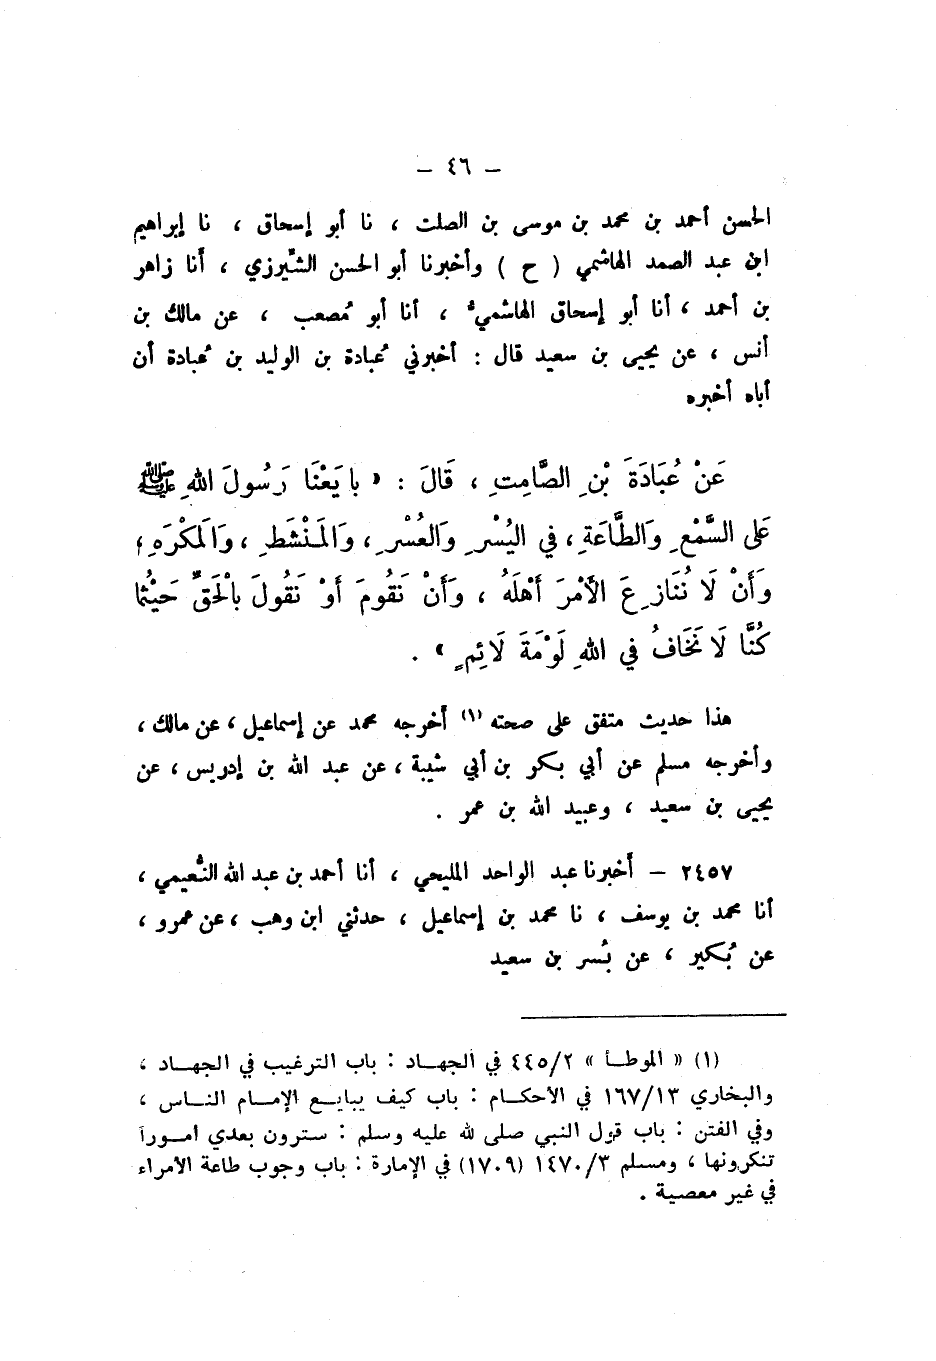 – ٤٦ –
الحسن أحمد بن محمد بن موسى بن الصلت ، نا أبو إسحاق ، نا إبراهيم
ابن عبد الصمد الهاشمي ( ح ) وأخبرنا أبو الحسن الشّيرزي ، أنا زاهر
بن أحمد ، أنا أبو إسحاق الهاشميُّ ، أنا أبو مُصعب ، عن مالك بن
أنس ، عن يحيى بن سعيد قال : أخبرني عُبادة بن الوليد بن عُبادة أن
أباه أخبره
عَنْ عُبَادَةَ بْنِ الصَّامِتِ ، قَالَ : « بايَعْنَا رَسُولَ اللهِ ﷺ
عَلى السَّمْعِ وَالطَّاعَةِ ، في اليُسْرِ وَالعُسْرِ ، وَالمَنْشَطِ ، وَالمَكْرَهِ ؛
وَأَنْ لَا نُنَازِعَ الأَمْرَ أَهْلَهُ ، وَأَنْ نَقُومَ أَوْ نَقُولَ بِالْحَقِّ حَيْثُما
كُنَّا لَا نَخَافُ في اللهِ لَوْمَةَ لَائِمٍ » .
هذا حديث متفق على صحته (١) أخرجه محمد عن إسماعيل ، عن مالك ،
وأخرجه مسلم عن أبي بكر بن أبي شيبة ، عن عبد الله بن إدريس ، عن
يحيى بن سعيد ، وعبيد الله بن عمر .
٢٤٥٧ – أخبرنا عبد الواحد المليحي ، أنا أحمد بن عبد الله النُّعيمي ،
أنا محمد بن يوسف ، نا محمد بن إسماعيل ، حدثني ابن وهب ، عن عمرو ،
عن بُكير ، عن بُسر بن سعيد
(١) « الموطـأ » ٤٤٥/٢ في الجهـاد : باب الترغيب في الجهـاد ،
والبخاري ١٦٧/١٣ في الأحكـام : باب كيف يبايـع الإمـام النـاس ،
وفي الفتن : باب قول النبي صلى لله عليه وسلم : سترون بعدي أمـوراً
تنكرونها ، ومسلم ١٤٧٠/٣ (١٧٠٩) في الإمارة : باب وجوب طاعة الأمراء
في غير معصية .